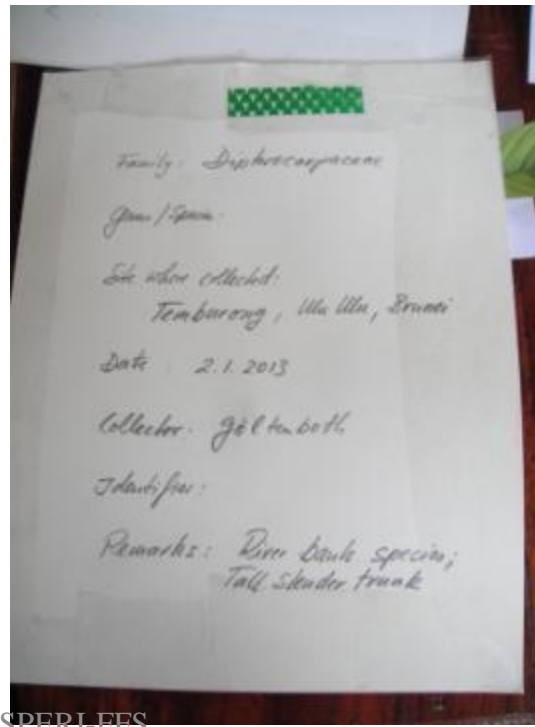 Family: Diphrocarpaceae
Genus / Species
Site where collected:
Temburong, Ulu Ulu, Brunei
Date : 2.1.2013
Collector: Göltenboth
Identifier:
Remarks: River bank species;
Tall slender trunk
SPERI-FFS